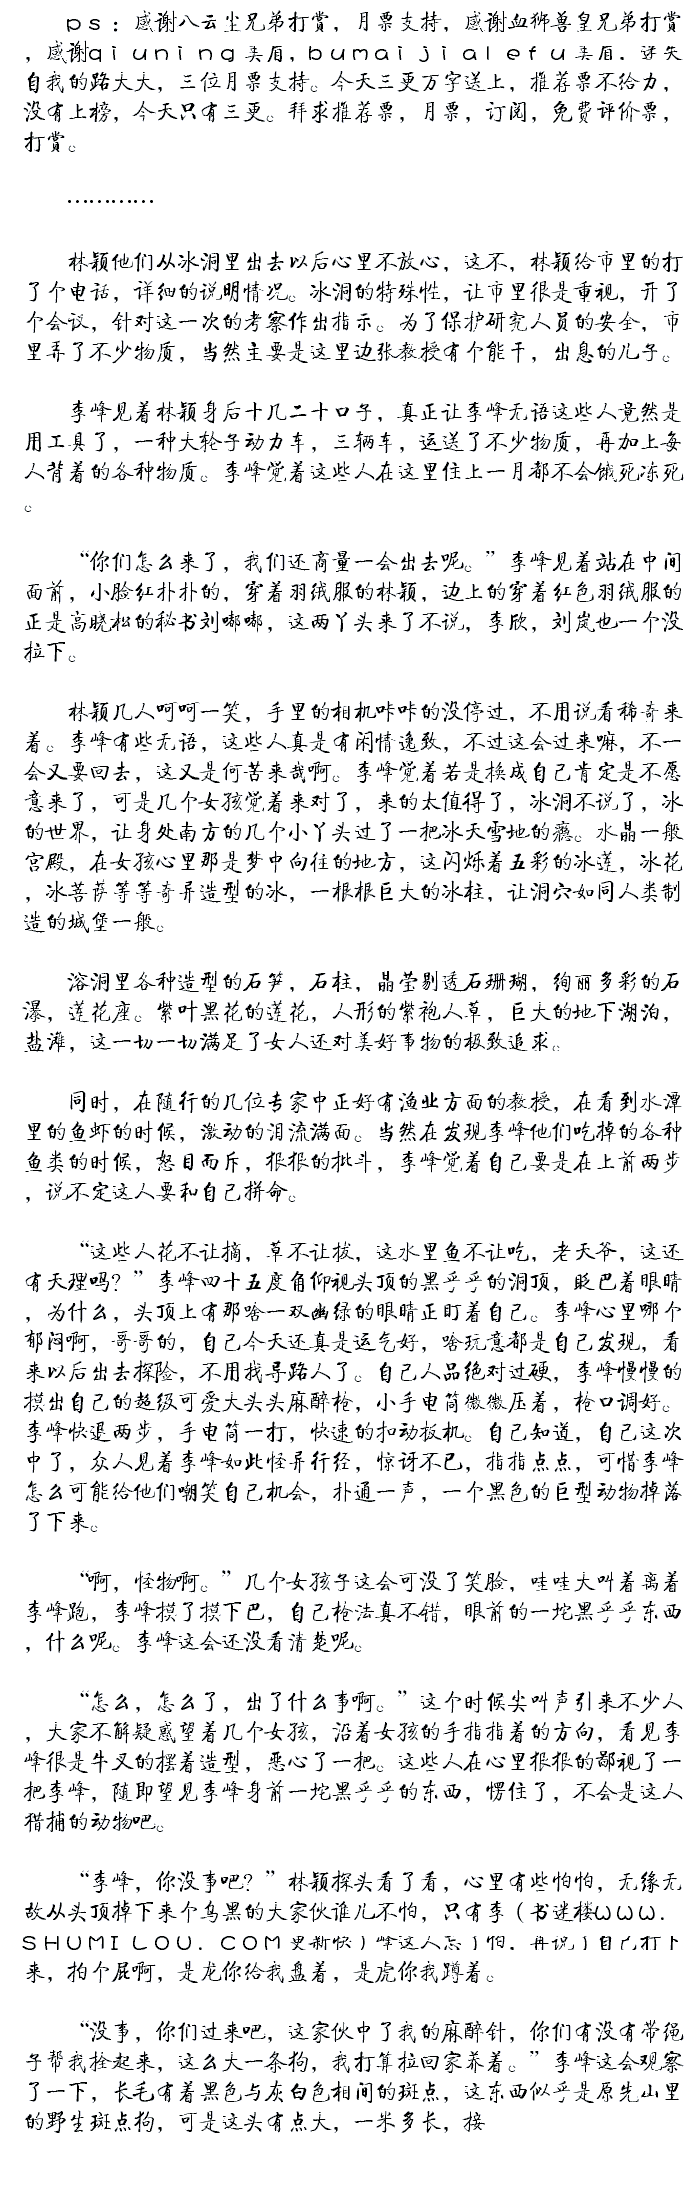 ps：感谢八云尘兄弟打赏，月票支持，感谢血狮兽皇兄弟打赏
，感谢qiuning美眉，bumaijialefu美眉．迷失
自我的路大大，三位月票支持。今天三更万字送上，推荐票不给力，
没有上榜，今天只有三更。拜求推荐票，月票，订阅，免费评价票，
打赏。
…………
林颖他们从冰洞里出去以后心里不放心，这不，林颖给市里的打
了个电话，详细的说明情况。冰洞的特殊性，让市里很是重视，开了
个会议，针对这一次的考察作出指示。为了保护研究人员的安全，市
里弄了不少物质，当然主要是这里边张教授有个能干，出息的儿子。
李峰见着林颖身后十几二十口子，真正让李峰无语这些人竟然是
用工具了，一种大轮子动力车，三辆车，运送了不少物质，再加上每
人背着的各种物质。李峰觉着这些人在这里住上一月都不会饿死冻死
。
“你们怎么来了，我们还商量一会出去呢。”李峰见着站在中间
面前，小脸红扑扑的，穿着羽绒服的林颖，边上的穿着红色羽绒服的
正是高晓松的秘书刘嘟嘟，这两丫头来了不说，李欣，刘岚也一个没
拉下。
林颖几人呵呵一笑，手里的相机咔咔的没停过，不用说看稀奇来
着。李峰有些无语，这些人真是有闲情逸致，不过这会过来嘛，不一
会又要回去，这又是何苦来哉啊。李峰觉着若是换成自己肯定是不愿
意来了，可是几个女孩觉着来对了，来的太值得了，冰洞不说了，冰
的世界，让身处南方的几个小丫头过了一把冰天雪地的瘾。水晶一般
宫殿，在女孩心里那是梦中向往的地方，这闪烁着五彩的冰莲，冰花
，冰菩萨等等奇异造型的冰，一根根巨大的冰柱，让洞穴如同人类制
造的城堡一般。
溶洞里各种造型的石笋，石柱，晶莹剔透石珊瑚，绚丽多彩的石
瀑，莲花座。紫叶黑花的莲花，人形的紫袍人草，巨大的地下湖泊，
盐滩，这一切一切满足了女人还对美好事物的极致追求。
同时，在随行的几位专家中正好有渔业方面的教授，在看到水潭
里的鱼虾的时候，激动的泪流满面。当然在发现李峰他们吃掉的各种
鱼类的时候，怒目而斥，狠狠的批斗，李峰觉着自己要是在上前两步
，说不定这人要和自己拼命。
“这些人花不让摘，草不让拔，这水里鱼不让吃，老天爷，这还
有天理吗？”李峰四十五度角仰视头顶的黑乎乎的洞顶，眨巴着眼睛
，为什么，头顶上有那啥一双幽绿的眼睛正盯着自己。李峰心里哪个
郁闷啊，哥哥的，自己今天还真是运气好，啥玩意都是自己发现，看
来以后出去探险，不用找寻路人了。自己人品绝对过硬，李峰慢慢的
摸出自己的超级可爱大头头麻醉枪，小手电筒微微压着，枪口调好。
李峰快退两步，手电筒一打，快速的扣动板机。自己知道，自己这次
中了，众人见着李峰如此怪异行径，惊讶不已，指指点点，可惜李峰
怎么可能给他们嘲笑自己机会，扑通一声，一个黑色的巨型动物掉落
了下来。
“啊，怪物啊。”几个女孩子这会可没了笑脸，哇哇大叫着离着
李峰跑，李峰摸了摸下巴，自己枪法真不错，眼前的一坨黑乎乎东西
，什么呢。李峰这会还没看清楚呢。
“怎么，怎么了，出了什么事啊。”这个时候尖叫声引来不少人
，大家不解疑惑望着几个女孩，沿着女孩的手指指着的方向，看见李
峰很是牛叉的摆着造型，恶心了一把。这些人在心里狠狠的鄙视了一
把李峰，随即望见李峰身前一坨黑乎乎的东西，愣住了，不会是这人
猎捕的动物吧。
“李峰，你没事吧？”林颖探头看了看，心里有些怕怕，无缘无
故从头顶掉下来个乌黑的大家伙谁儿不怕，只有李（书迷楼WWW．
SHUMILOU．COM更新快）峰这人忘了怕．再说了自己打下
来，拍个屁啊，是龙你给我盘着，是虎你我蹲着。
“没事，你们过来吧，这家伙中了我的麻醉针，你们有没有带绳
子帮我拴起来，这么大一条狗，我打算拉回家养着。”李峰这会观察
了一下，长毛有着黑色与灰白色相间的斑点，这东西似乎是原先山里
的野生斑点狗，可是这头有点大，一米多长，接